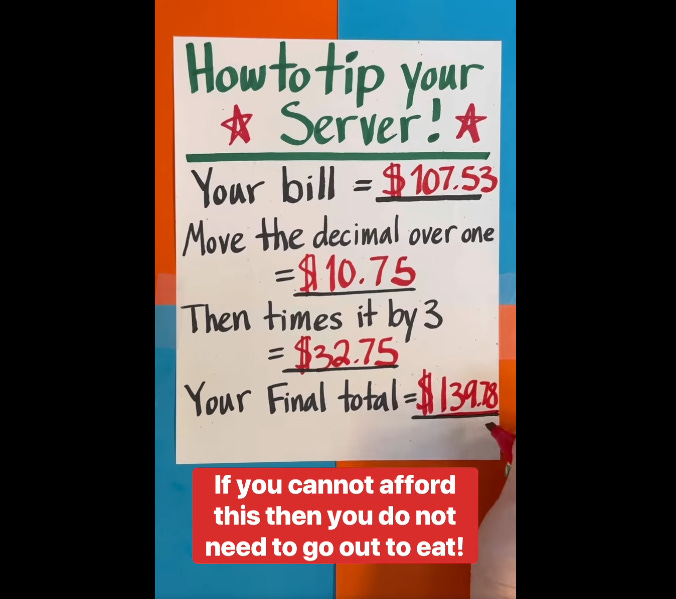 How to tip your
Server!
Your bill = $107.53
Move the decimal over one
= $10.75
Then times it by 3
= $32.75
Your Final total = $139.78
If you cannot afford
this then you do not
need to go out to eat!